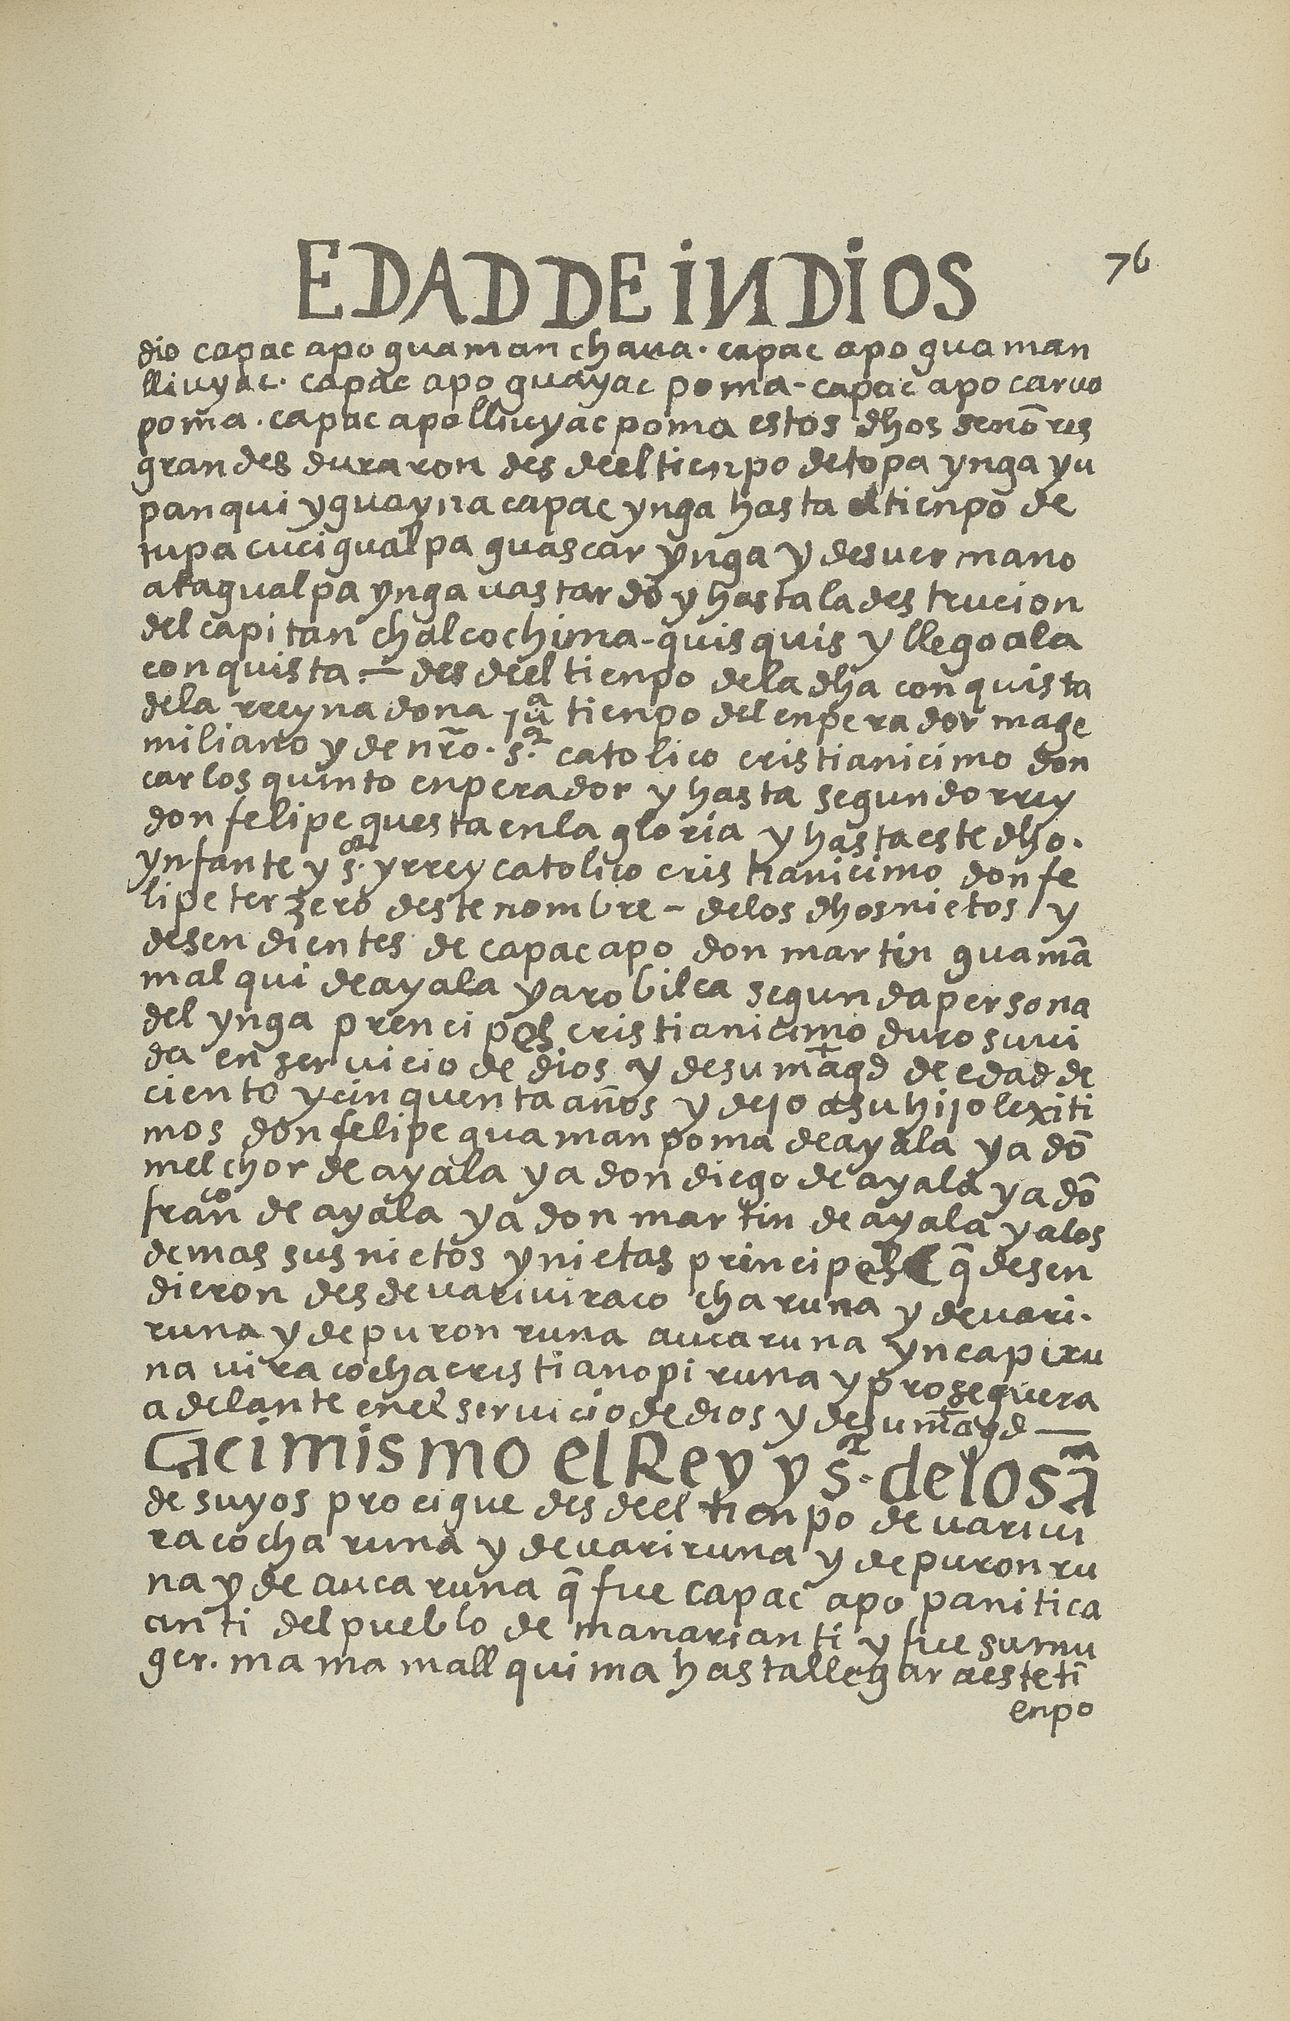 EDAD DE INDIOS
76
dio capac apo guaman chaua. capac apo guaman
lliuyac. capac apo guayac poma - capac apo carua
poma. capac apo lliuyac poma estos dhos senores
grandes duraron des de el tienpo de topa ynga yu
panqui y guayna capac ynga hasta el tienpo de
tupa cuci gualpa guascar ynga y de su ermano
atagualpa ynga uastardo y hasta la destrucion
del capitan chalcochima - quisquis y llego a la
conquista. — des de el tienpo de la dha conquista
de la rreyna dona juª tienpo del enperador mage
miliano y de nro. sr catolico cristianicimo don
carlos quinto enperador y hasta segundo rrey
don felipe questa en la gloria y hasta este dho.
ynfante y sor. y rrey catolico cristianicimo don fe
lipe terzero deste nombre - de los dhos nietos y
desendientes de capac apo don martin guamā
malqui de ayala yaro bilca segunda persona
del ynga prencipes cristianicimo duro su ui
da en seruicio de dios y de su magd de edad de
ciento y cinquenta años y dejo a su hijo lexiti
mos don felipe guaman poma de ayala y a dō
melchor de ayala y a don diego de ayala y a dō
franco de ayala y a don martin de ayala y a los
demas sus nietos y nietas principales q̄ desen
dieron des de uari uiraco cha runa y de uari.
runa y de puron runa auca runa ynca pi ru
na uira cocha cristiano pi runa y proseguera
adelante en el seruicio de dios y de su magd —
acimismo el Rey y sr. de los ā
de suyos procigue des de el tienpo de uari ui
ra cocha runa y de uari runa y de puron ru
na y de auca runa q̄ fue capac apo panitica
anti del pueblo de manarianti y fue su mu
ger. mama mallquima hasta llegar a este ti
enpo